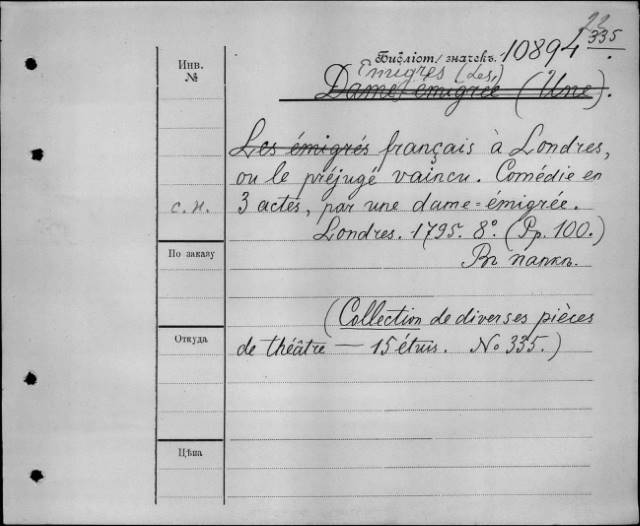 22
335
Инв.
№
Библіот. значекъ. 10894
Emigrés (Les,)
Dame-émigrée (Une).
Les émigrés français à Londres,
ou le préjugé vaincu. Comédie en
с. н. 3 actes, par une dame-émigrée.
Londres. 1795. 8º. (Pp. 100.)
По заказу
Въ папкѣ.
(Collection de diverses pièces
Откуда
de théâtre — 15 étuis. No 335.)
Цѣна